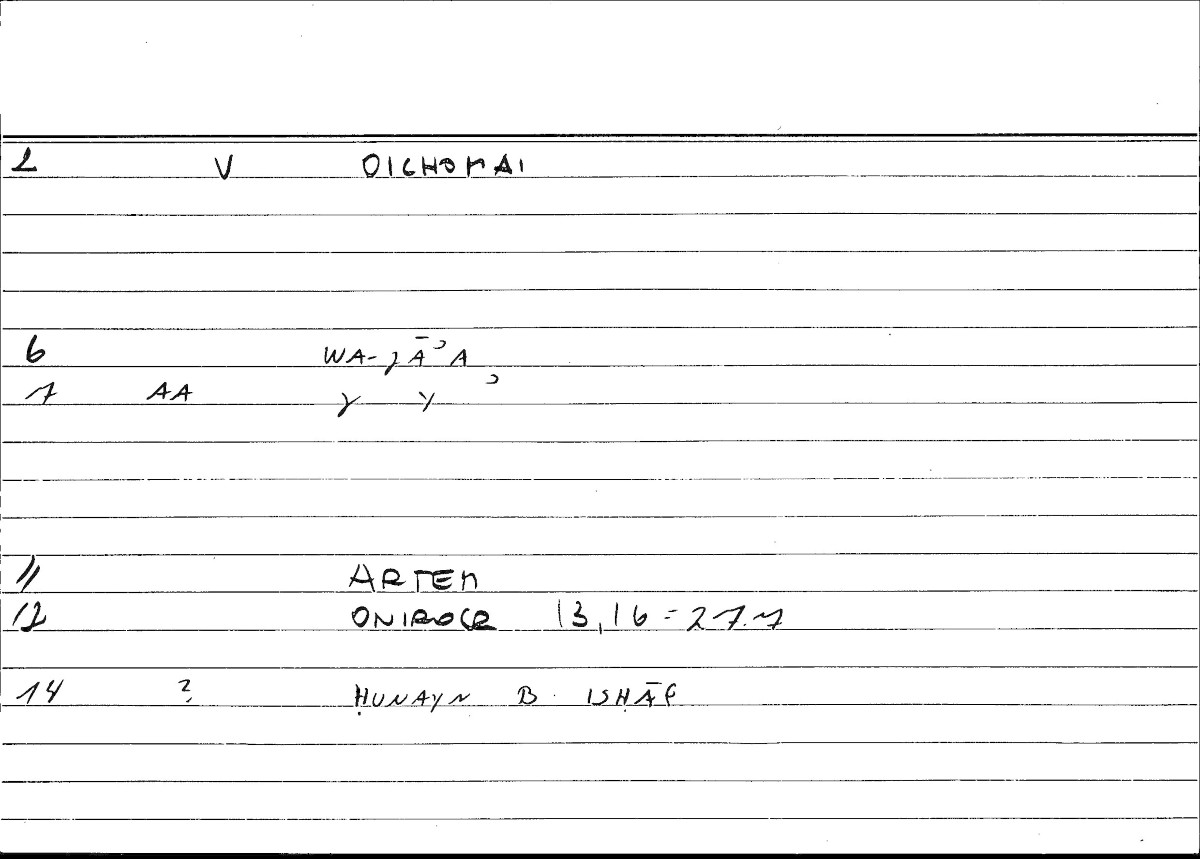 2 V OICHOMAI
6 WA-JĀʾA
7 AA
11 ARTEM
12 ONIROCR 13,16 = 27.7
14 ? ḤUNAYN B. ISḤĀQ